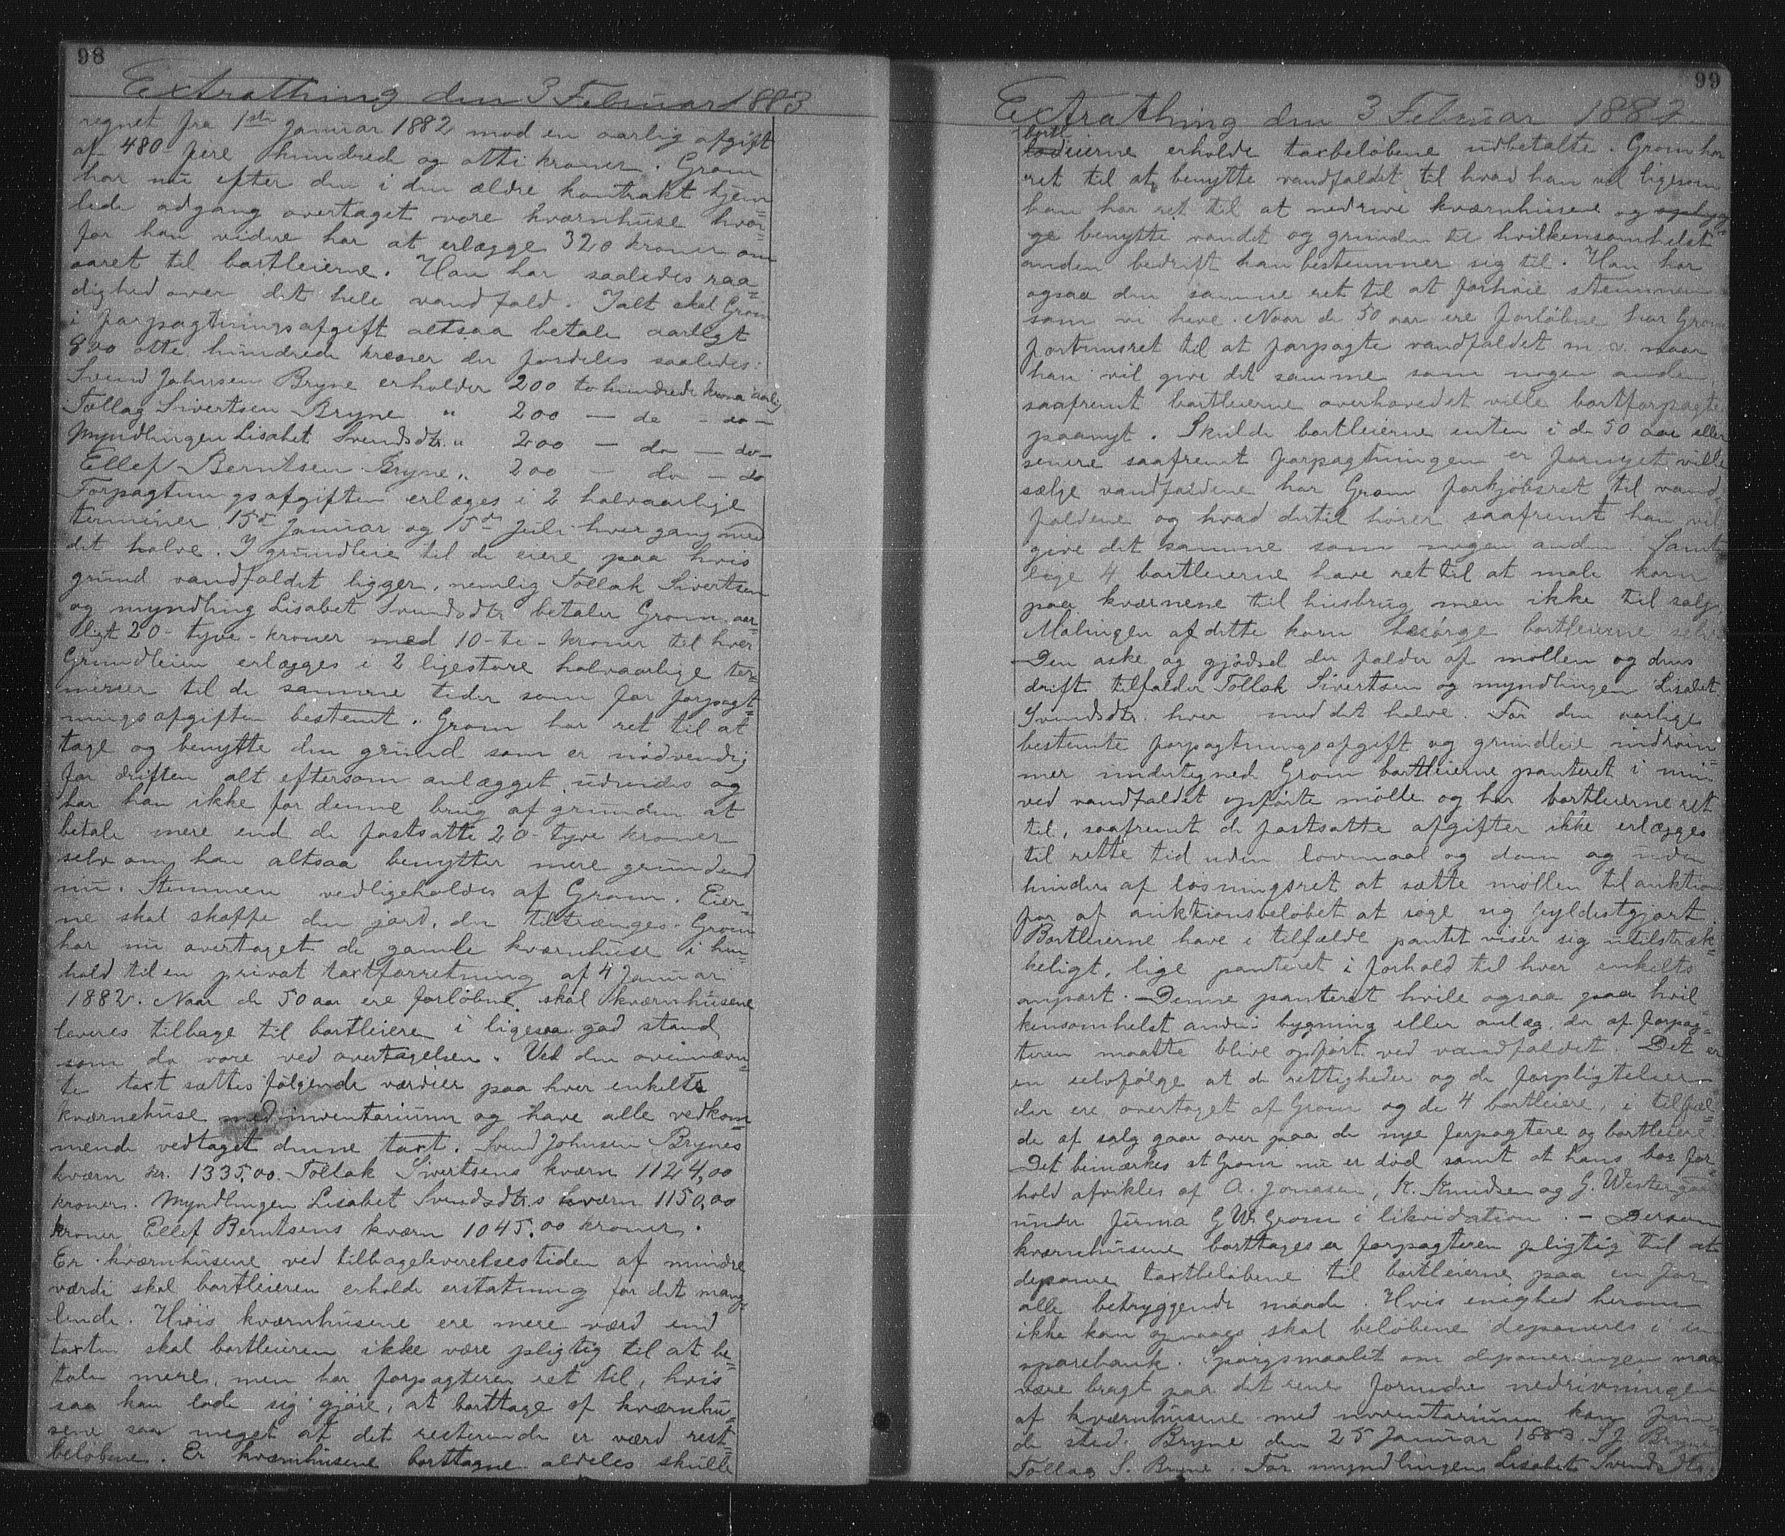 98
Extrathing den 3 Februar 1883
regnet fra 1ste Januar 1882 mod en aarlig afgift
af 480 fire hundrede og otti kroner. Grom
har nu efter den i den ældre kontrakt hjem=
lede adgang overtaget vore kværnhuse hvor=
for han videre har at erlægge 320 kroner om
aaret til bortleierne. Han har saaledes raa=
dighed over det hele vandfald. Ialt skal Grom
i forpagtningsafgift altsaa betale aarligt
800 otte hundrede kroner der fordeles saaledes:
Svend Johnsen Bryne erholder 200 to hundrede kroner aarlig
Tollag Sivertsen Bryne " 200 — do — do —
Myndlingen Lisabet Svendsdtr. " 200 — do — do —
Ellef Berntsen Bryne " 200 — do — do
Forpagtningsafgiften erlægges i 2 halvaarlige
terminer 15de Januar og 15de Juli hver gang med
det halve. I grundleie til de eiere paa hvis
grund vandfaldet ligger, nemlig Tollak Sivertsen
og myndling Lisabet Svendsdtr betaler Grom aar=
ligt 20 - tyve - kroner med 10 - ti - kroner til hver
Grundleien erlægges i 2 ligestore halvaarlige ter=
miner til de samme tider som for forpagt=
ningsafgiften bestemt. Grom har ret til at
tage og benytte den grund som er nødvendig
for driften alt eftersom anlægget udvides og
har han ikke for denne brug af grunden at
betale mere end de fastsatte 20 - tyve kroner
selv om han altsaa benytter mere grund end
nu. Stemmen vedligeholdes af Grom. Eier=
ne skal skaffe den jord, den tiltrænges. Grom
har nu overtaget de gamle kværnhuse i hen=
hold til en privat taxtforretning af 4 Januar
1882. Naar de 50 aar ere forløbne skal kværnhusene
leveres tilbage til bortleiere i ligesaa god stand
som de vare ved overtagelsen. Ved den ovennævn=
te taxt sættes følgende værdier paa hver enkelts
kværnehuse med inventarium og have alle vedkom=
mende vedtaget denne taxt. Svend Johnsen Brynes
kværn kr. 1335,00. Tollak Sivertsens kværn 1124,00
kroner. Myndlingen Lisabet Svendsdtrs kværn 1150,00
kroner Ellef Berntsens kværn 1045,00 kroner.
Er kværnhusene ved tilbageleverelsestiden af mindre
værdi skal bortleieren erholde erstatning for det mang=
lende. Hvis kværnhusene ere mere værd end
taxten skal bortleieren ikke være pligtig til at be=
tale mere, men har forpagteren ret til, hvis
saa kan lade sig gjøre, at borttage af kværnhu=
sene saa meget at det resterende er værd rest=
beløbene. Er kværnhusene borttagne aldeles skulle
99
Extrathing den 3 Februar 1883
bortleierne erholde taxbeløbene udbetalte. Grom har
ret til at benytte vandfaldet til hvad han vil ligesom
han har ret til at nedrive kværnhusene og
benytte vandet og grunden til hvilkensomhelst
anden bedrift han bestemmer sig til. Han har
ogsaa den samme ret til at forhøie stemmen
som vi have. Naar de 50 aar ere forløbne har Grom
fortrinsret til at forpagte vandfaldet m. v. naar
han vil give det samme som nogen anden,
saafremt bortleierne overhovedet ville bortforpagte
paanyt. Skulde bortleierne enten i de 50 aar eller
senere saafremt forpagtningen er fornyet ville
sælge vandfaldene har Grom forkjøbsret til vand=
faldene og hvad dertil hører saafremt han vil
give det samme som nogen anden. Samt=
lige 4 bortleierne have ret til at male korn
paa kværnene til husbrug men ikke til salg.
Malingen af dette korn besørge bortleierne selv.
Den aske og gjødsel der falder af møllen og dens
drift tilfalder Tollak Sivertsen og myndlingen Lisabet
Svendsdtr. hver med det halve. For den aarlige
bestemte forpagtningsafgift og grundleie indrøm=
mer undertegnede Grom bortleierne panteret i min
ved vandfaldet opførte mølle og har bortleierne ret
til, saafremt de fastsatte afgifter ikke erlægges
til rette tid uden lovmaal og dom og uden
hinder af løsningsret at sætte møllen til auktion
for af auktionsbeløbet at søge sig fyldestgjort.
Bortleierne have i tilfælde pantet viser sig utilstræk=
keligt, lige panteret i forhold til hver enkelts
anpart. Denne panteret hvile ogsaa paa hvil=
kensomhelst anden bygning eller anlæg, der af forpag=
teren maatte blive opført ved vandfaldet. Det er
en selvfølge at de rettigheder og de forpligtelser
der ere overtaget af Grom og de 4 bortleiere, i tilfæl=
de af salg gaar over paa de nye forpagtere og bortleiere.
Det bemærkes at Grom nu er død samt at hans bos for=
hold afvikles af A. Jonasen, K. Knudsen og G. Westergaard
under firma G W Grom i likvidation. — Dersom
kværnhusene borttages er forpagteren pligtig til at
deponere taxtbeløbene til bortleierne paa en for
alle betryggende maade. Hvis enighed herom
ikke kan opnaaes skal beløbene deponeres i en
sparebank. Spørgsmaalet om deponeringen maa
være bragt paa det rene forinden nedrivningen
af kværnhusene med inventarium kan fin=
de sted. Bryne den 25 Januar 1883. S J Bryne
Tollag S. Bryne. For myndlingen Lisabet Svendsdtr.